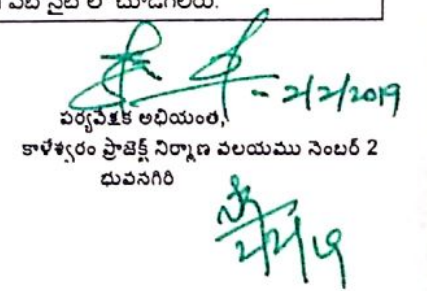 వెబ్ సైట్ లో చూడగలరు.
2/2/2019
పర్యవేక్షక అభియంత,
కాళేశ్వరం ప్రాజెక్ట్ నిర్మాణ వలయము నెంబర్ 2
భువనగిరి
2/2/19